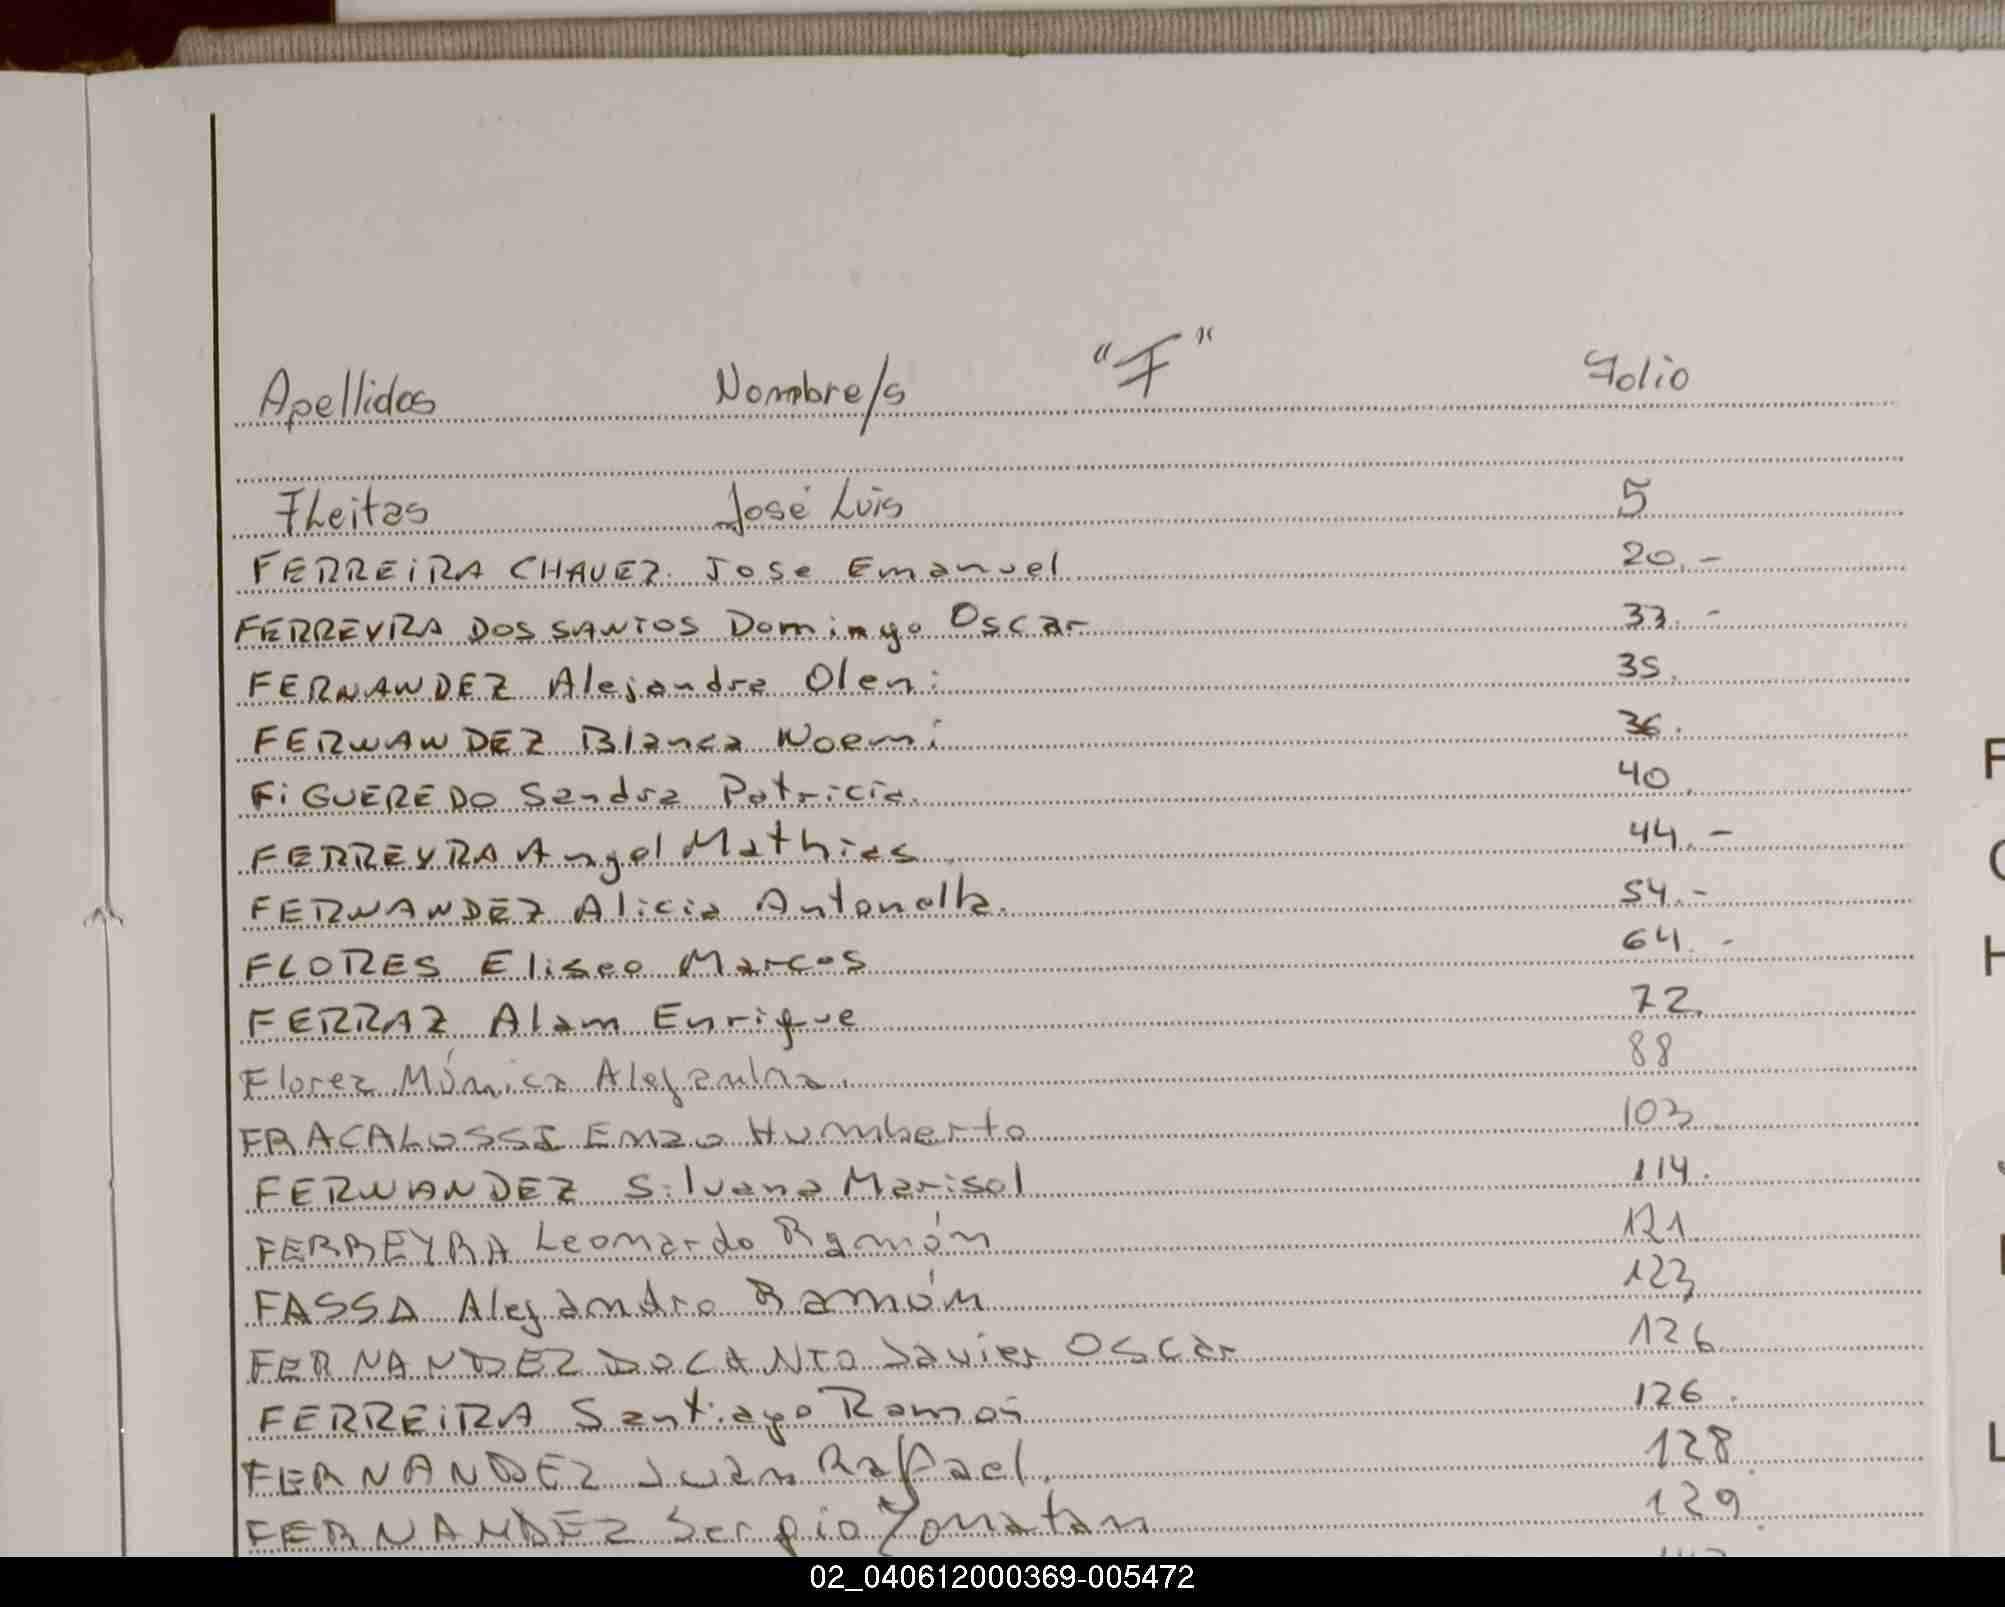 "F"
Apellidos Nombre/s Folio
Fleitas José Luis 5
FERREIRA CHAVEZ. Jose Emanuel 20.-
FERREYRA DOS SANTOS Domingo Oscar 33.-
FERNANDEZ Alejandra Oleni 35.
FERNANDEZ Blanca Noemi 36.
FIGUEREDO Sandra Patricia. 40.
FERREYRA Angel Mathias 44.-
FERNANDEZ Alicia Antonella. 54.-
FLORES Eliseo Marcos 64.-
FERRAZ Alam Enrique 72.
Florez Mónica Alejandra. 88
FRACALOSSI Enzo Humberto 103
FERNANDEZ Silvana Marisol 114.
FERREYRA Leonardo Ramón 121
FASSA Alejandro Ramón 123
FERNANDEZ DO CANTO Javier Oscar 126
FERREIRA Santiago Ramón 126.
FERNANDEZ Juan Rafael. 128.
FERNANDEZ Sergio Yonatan 129.
F
H
L
02_040612000369-005472